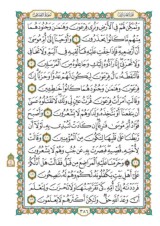 وَنُمَكِّنَ لَهُمْ فِي ٱلْأَرْضِ وَنُرِيَ فِرْعَوْنَ وَهَٰمَٰنَ وَجُنُودَهُمَا
مِنْهُم مَّا كَانُوا۟ يَحْذَرُونَ ٦ وَأَوْحَيْنَآ إِلَىٰٓ أُمِّ مُوسَىٰٓ
أَنْ أَرْضِعِيهِ فَإِذَا خِفْتِ عَلَيْهِ فَأَلْقِيهِ فِي ٱلْيَمِّ وَلَا تَخَافِي
وَلَا تَحْزَنِيٓ إِنَّا رَآدُّوهُ إِلَيْكِ وَجَاعِلُوهُ مِنَ ٱلْمُرْسَلِينَ ٧
فَٱلْتَقَطَهُۥٓ ءَالُ فِرْعَوْنَ لِيَكُونَ لَهُمْ عَدُوًّا وَحَزَنًا إِنَّ
فِرْعَوْنَ وَهَٰمَٰنَ وَجُنُودَهُمَا كَانُوا۟ خَٰطِـِٔينَ ٨
وَقَالَتِ ٱمْرَأَتُ فِرْعَوْنَ قُرَّتُ عَيْنٍ لِّي وَلَكَ لَا تَقْتُلُوهُ عَسَىٰٓ
أَن يَنفَعَنَآ أَوْ نَتَّخِذَهُۥ وَلَدًا وَهُمْ لَا يَشْعُرُونَ ٩ وَأَصْبَحَ
فُؤَادُ أُمِّ مُوسَىٰ فَٰرِغًا إِن كَادَتْ لَتُبْدِي بِهِۦ لَوْلَآ أَن
رَّبَطْنَا عَلَىٰ قَلْبِهَا لِتَكُونَ مِنَ ٱلْمُؤْمِنِينَ ١٠ وَقَالَتْ
لِأُخْتِهِۦ قُصِّيهِ فَبَصُرَتْ بِهِۦ عَن جُنُبٍ وَهُمْ لَا يَشْعُرُونَ ١١
وَحَرَّمْنَا عَلَيْهِ ٱلْمَرَاضِعَ مِن قَبْلُ فَقَالَتْ هَلْ أَدُلُّكُمْ
عَلَىٰٓ أَهْلِ بَيْتٍ يَكْفُلُونَهُۥ لَكُمْ وَهُمْ لَهُۥ نَٰصِحُونَ ١٢
فَرَدَدْنَٰهُ إِلَىٰٓ أُمِّهِۦ كَيْ تَقَرَّ عَيْنُهَا وَلَا تَحْزَنَ وَلِتَعْلَمَ
أَنَّ وَعْدَ ٱللَّهِ حَقٌّ وَلَٰكِنَّ أَكْثَرَهُمْ لَا يَعْلَمُونَ ١٣
٣٨٦